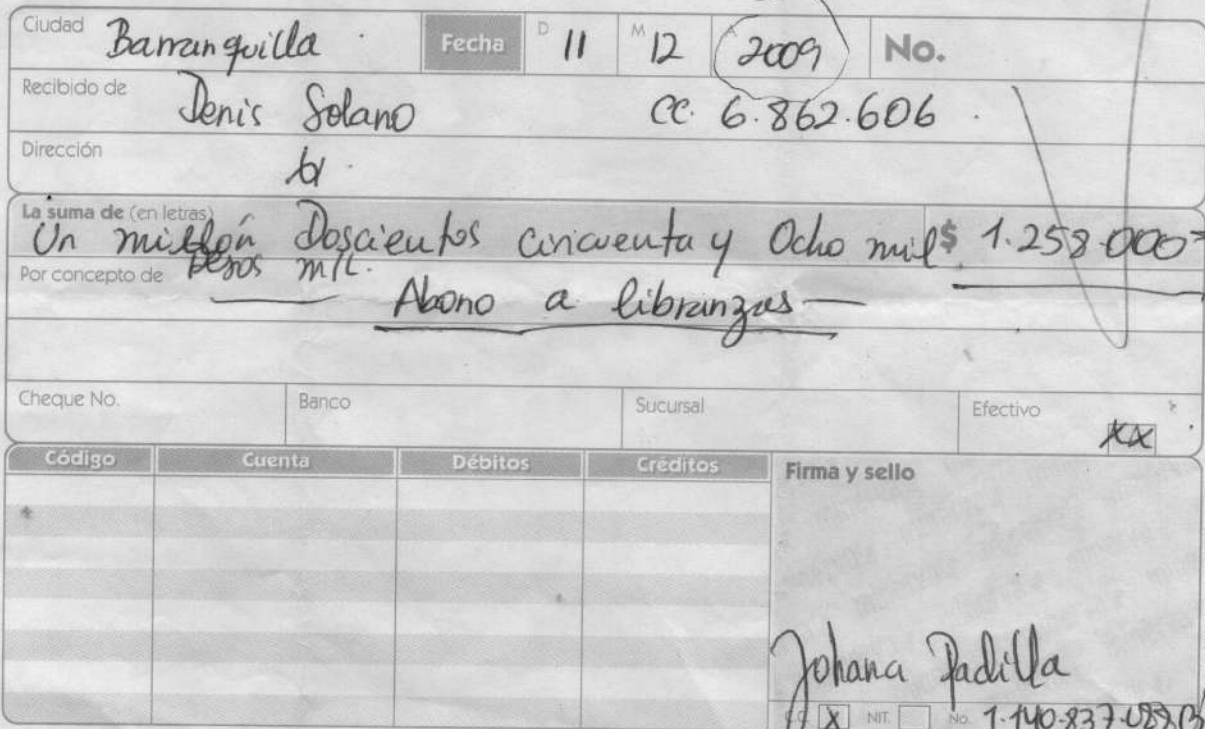 Ciudad Barranquilla Fecha D 11 M 12 A 2009 No.
Recibido de Denis Solano CC. 6.862.606
Dirección
La suma de (en letras) Un millón Doscientos cincuenta y Ocho mil $ 1.258.000=
pesos m/l.
Por concepto de Abono a libranzas
Cheque No. Banco Sucursal Efectivo xx
Código Cuenta Débitos Créditos Firma y sello
Johana Padilla
C.C. X NIT. No.